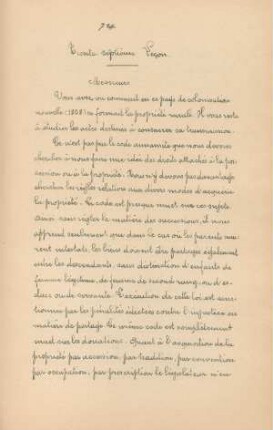 Trente septième Leçon
Messieurs
Vous avez vu comment en ce pays de colonisation
nouvelle (1858) se formait la propriété rurale. Il nous reste
à étudier les actes destinés à constater sa transmission.
Ce n'est pas par le code annamite que nous devons
chercher à nous faire une idée des droits attachés à la pos-
session ou à la propriété. Nous n'y devons pas davantage
chercher les règles relatives aux divers modes d'acquérir
la propriété. Le code est presque muet sur ces sujets.
Ainsi pour régler la matière des successions, il nous
apprend seulement que dans le cas où les parents meu-
rent intestats, les biens doivent être partagés également
entre les descendants, sans distinction d'enfants de
femme légitime, de femme de second rang, ou d'es-
clave ou de servante. L'exécution de cette loi est sanc-
tionnée par les pénalités édictées contre l'injustice en
matière de partage. Le même code est complètement
muet sur les donations. Quant à l'acquisition de la
propriété par accession, par tradition, par convention
par occupation, par prescription le législateur n'en